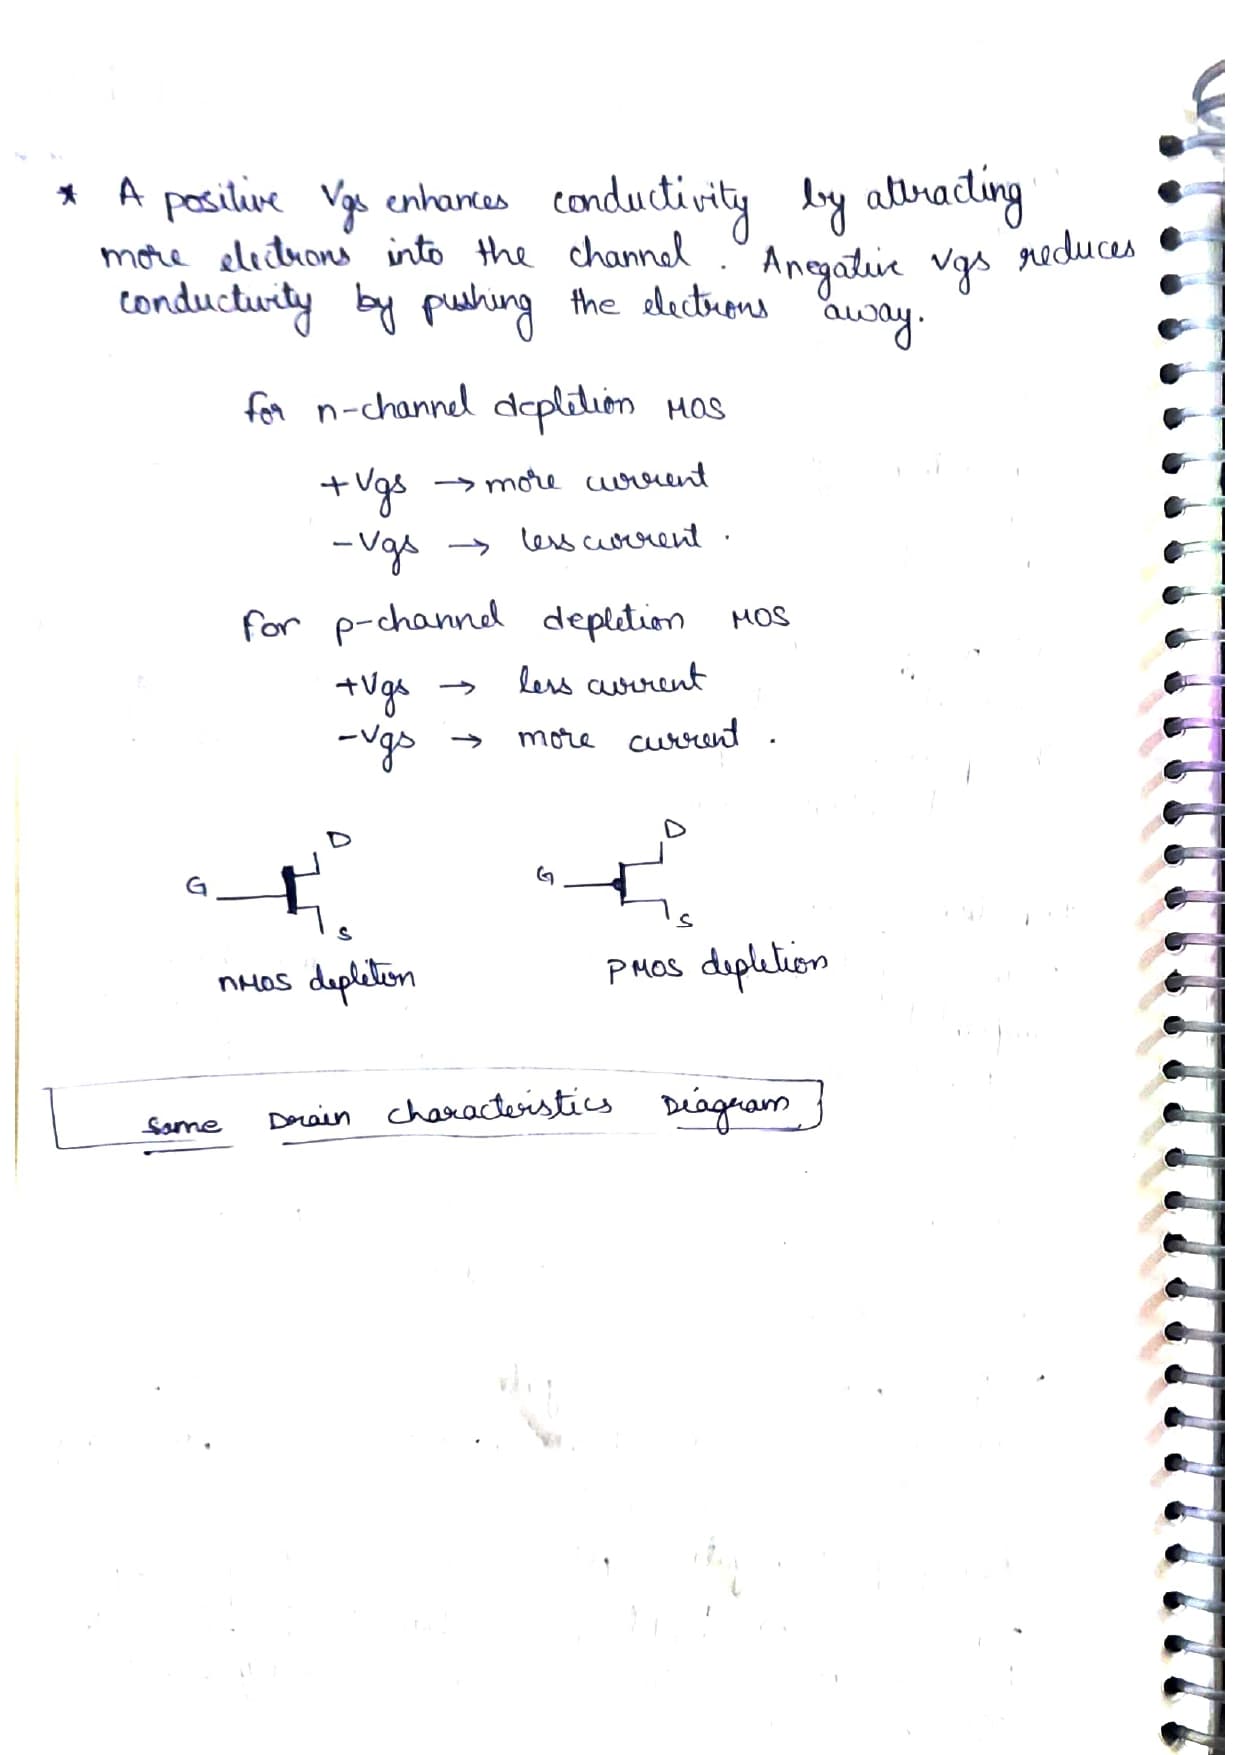 * A positive Vgs enhances conductivity by attracting
more electrons into the channel. A negative Vgs reduces
conductivity by pushing the electrons away.
for n-channel depletion MOS
+Vgs → more current
-Vgs → less current.
For p-channel depletion MOS
+Vgs → less current
-Vgs → more current.
D
G
S
nMOS depletion
D
G
S
PMOS depletion
Same Drain characteristics Diagram